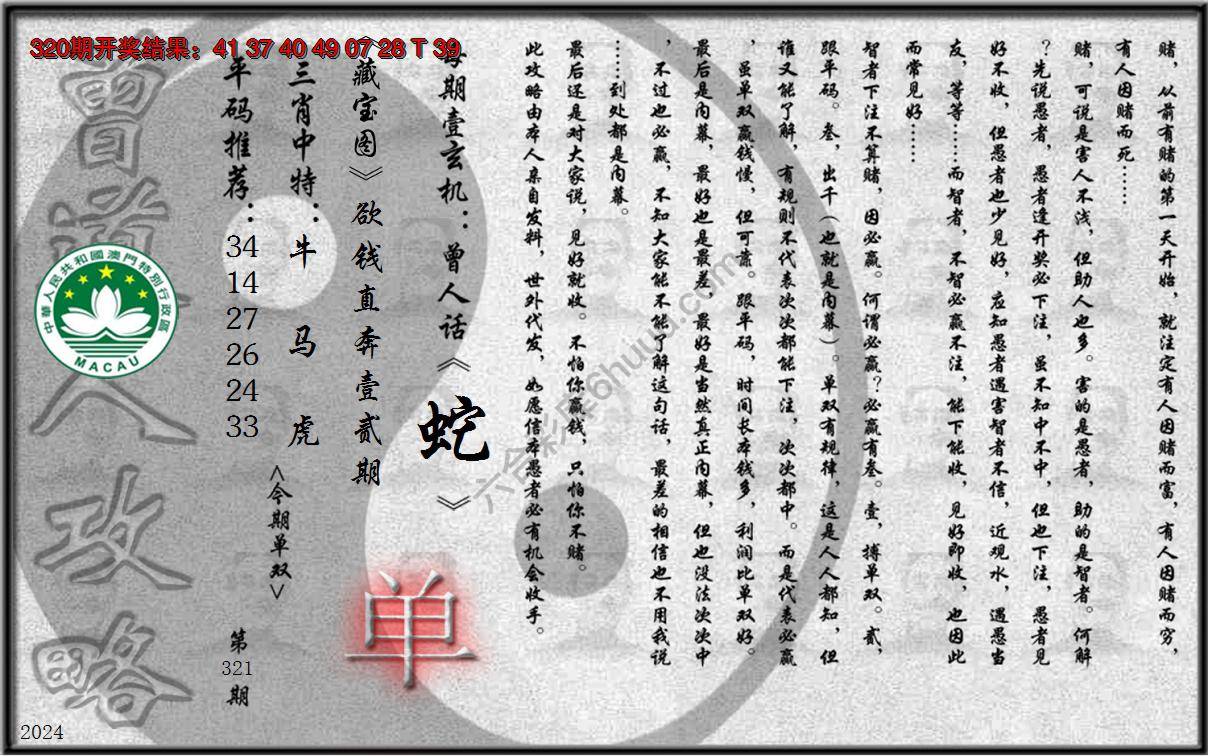 320期开奖结果：41 37 40 49 07 28 T 39
赌，从前有赌的第一天开始，就注定有人因赌而富，有人因赌而穷，
有人因赌而死……
赌，可说是害人不浅，但助人也多。害的是愚者，助的是智者。何解
？先说愚者，愚者逢开奖必下注，虽不知中不中，但也下注，愚者见
好不收，但愚者也少见好，应知愚者遇害智者不信，近观水，遇愚当
友，等等……而智者，不智必赢不注，能下能收，见好即收，也因此
而常见好……
智者下注不算赌，因必赢。何谓必赢？必赢有叁。壹，搏单双。贰，
跟平码。叁，出千（也就是内幕）。单双有规律，这是人人都知，但
谁又能了解，有规则不代表次次都能下注，次次都中。而是代表必赢
，虽单双赢钱慢，但可靠。跟平码，时间长本钱多，利润比单双好。
最后是内幕，最好也是最差，最好是当然真正内幕，但也没法次次中
，不过也必赢，不知大家能不能了解这句话，最差的相信也不用我说
……到处都是内幕。
最后还是对大家说，见好就收。不怕你赢钱，只怕你不赌。
此攻略由本人亲自发料，世外代发，如愿信本愚者必有机会收手。
每期壹玄机：曾人话《蛇》
《藏宝图》欲钱直奔壹贰期
三肖中特：牛 马 虎
平码推荐：
34
14
27
26
24
33
<今期单双>
单
第
321
期
曾道人攻略
中華人民共和國澳門特別行政區
MACAU
六合彩库6huuu.com
2024